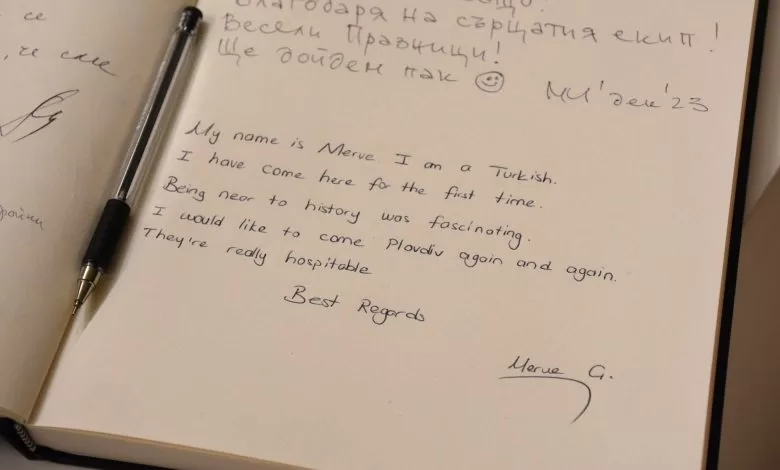 се
, че сме
Благодаря на сърцатия екип!
Весели Празници!
Ще дойдем пак ☺
МИ'дек'23
My name is Merve I am a Turkish.
I have come here for the first time.
Being near to history was fascinating.
I would like to come Plovdiv again and again.
They're really hospitable
Best Regards
Merve G.